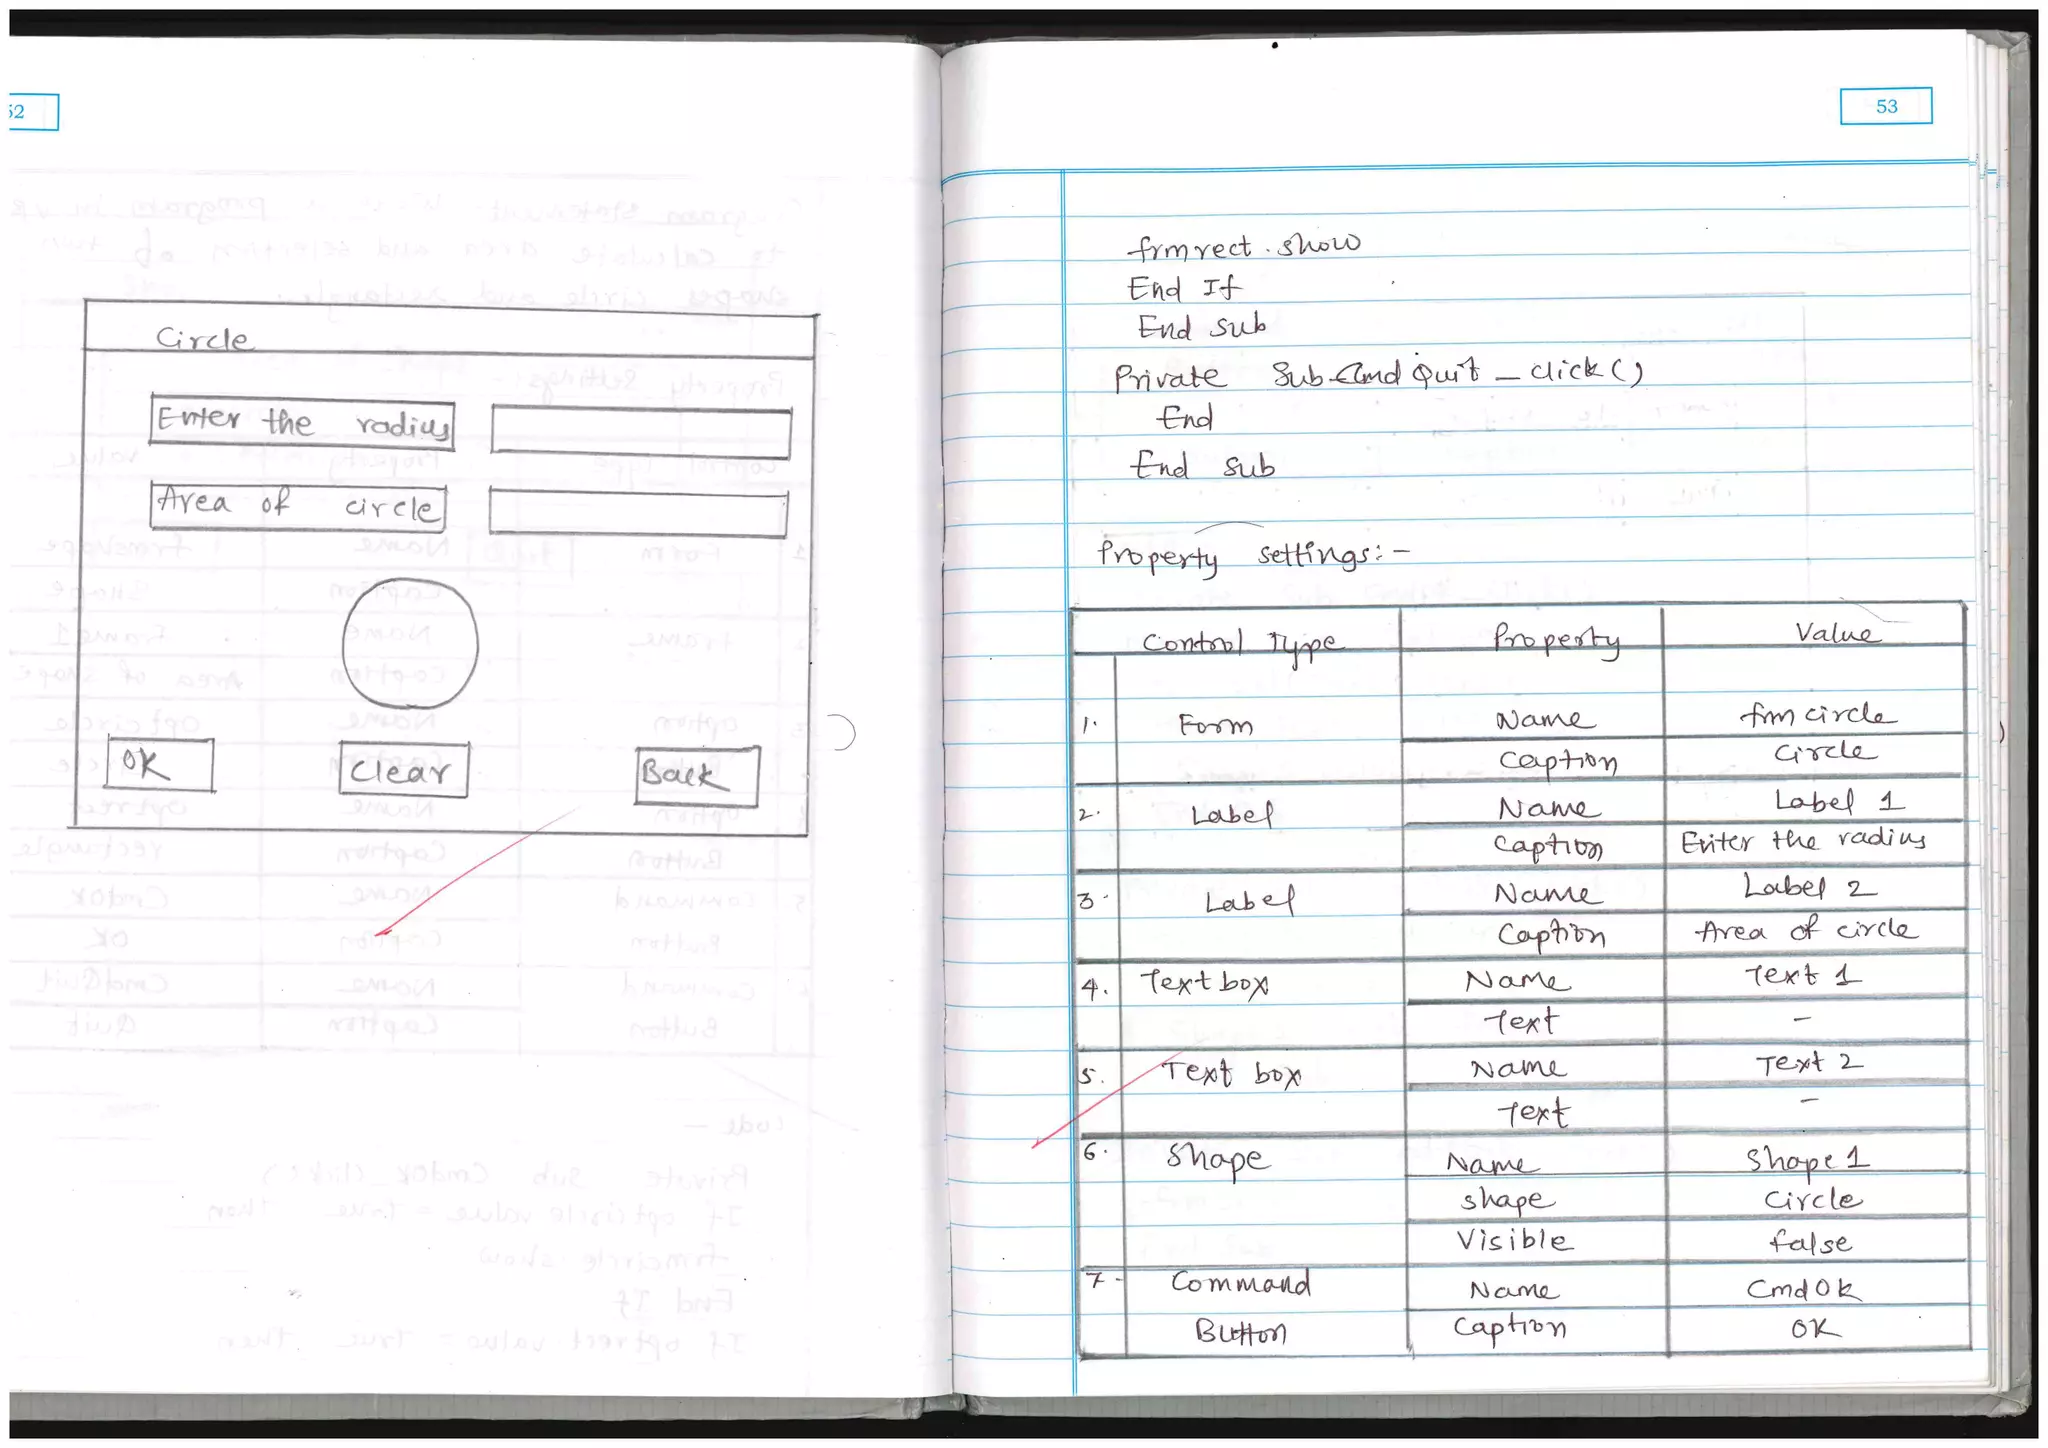 52
Circle
Enter the radius
Area of circle
OK
Clear
Back
53
frmrect.show
End If
End sub
Private Sub Cmd Quit_click()
End
End sub
Property settings:-
Control Type Property Value
1. Form Name frm circle
Caption Circle
2. Label Name Label 1
Caption Enter the radius
3. Label Name Label 2
Caption Area of circle
4. Text box Name Text 1
Text -
5. Text box Name Text 2
Text -
6. Shape Name Shape 1
shape Circle
Visible false
7. Command Name Cmd Ok
Button Caption OK